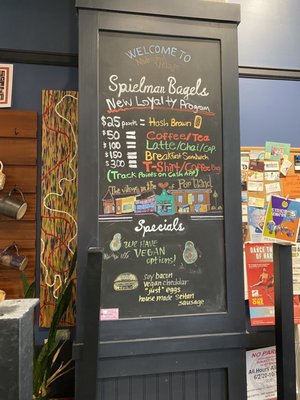 WELCOME TO
Spielman Bagels
New Loyalty Program
$25 points = Hash Brown
$50 " = Coffee/Tea
$100 " = Latte/Chai/cap.
$150 " = Breakfast Sandwich
$300 " = T-Shirt/Coffee Cup
(Track Points on Cash App)
Specials
WE HAVE
VEGAN
options!
soy bacon
vegan cheddar
"just" eggs
house made Seitan
sausage
NO PARK
6/22 0-10/
All Hours Al